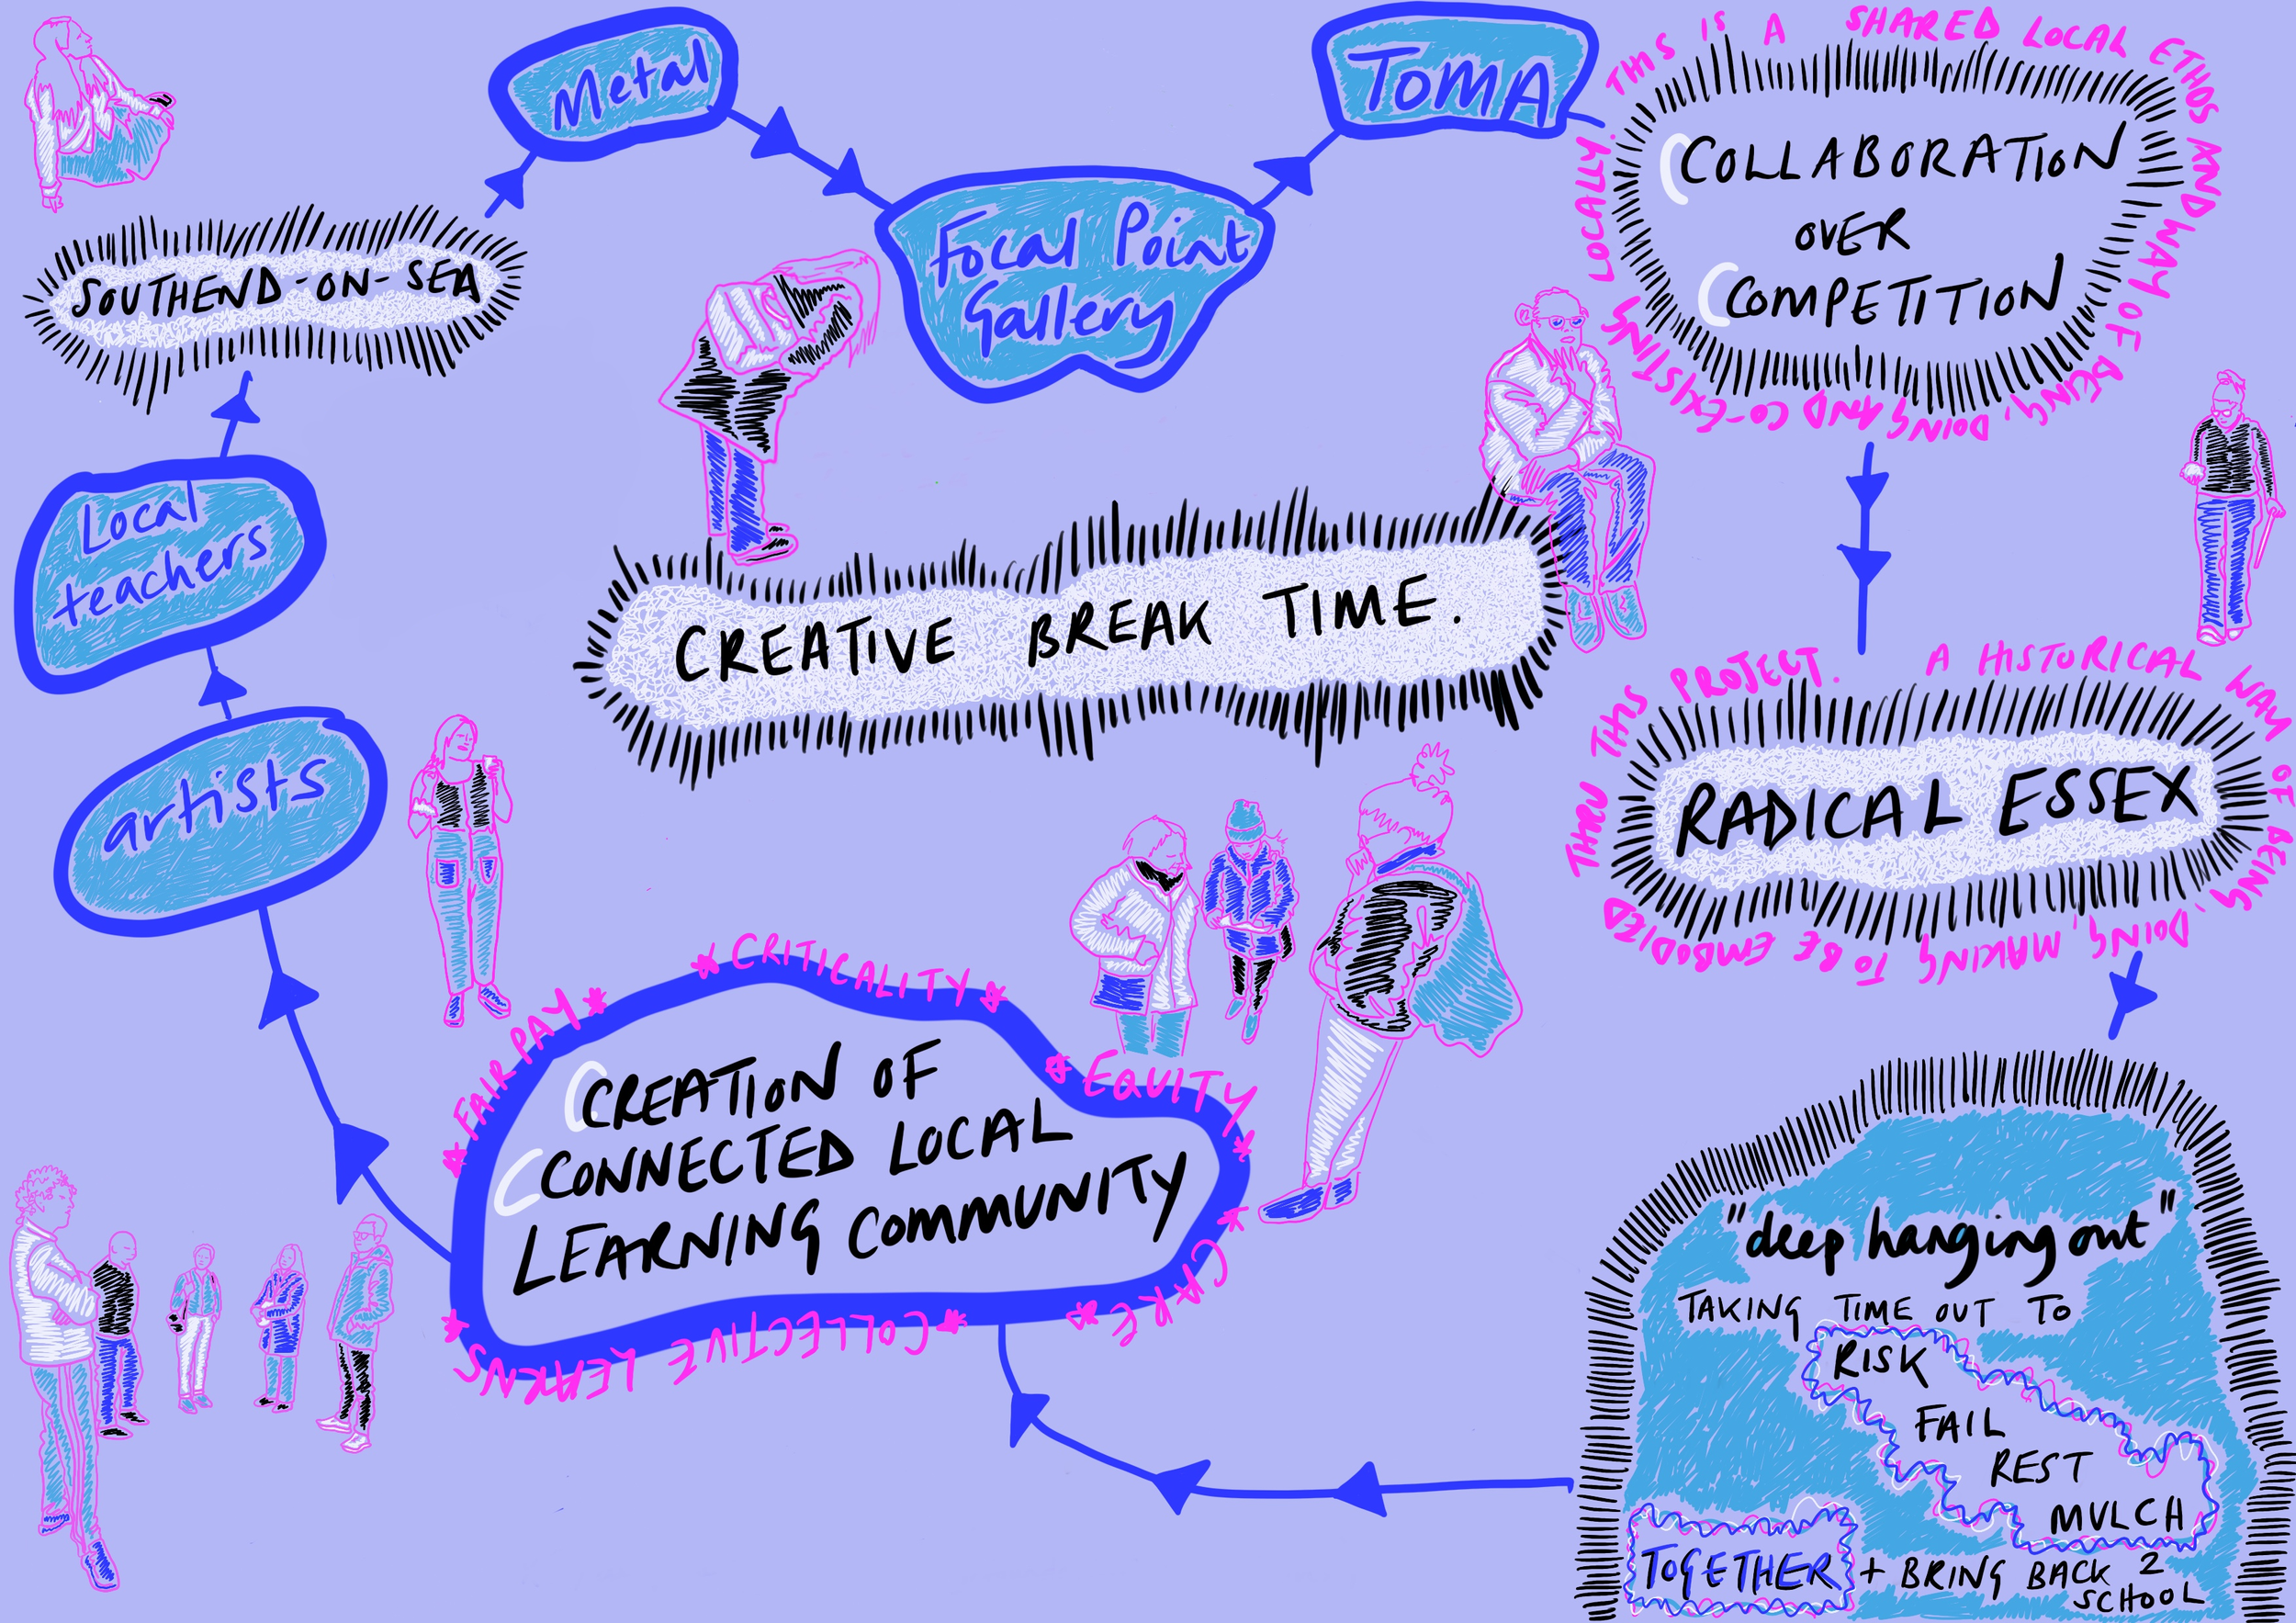 Metal
TOMA
THIS IS A SHARED LOCAL ETHOS AND WAY OF BEING, DOING AND CO-EXISTING LOCALLY.
COLLABORATION
OVER
COMPETITION
SOUTHEND-ON-SEA
Focal Point
Gallery
Local
teachers
CREATIVE BREAK TIME.
artists
A HISTORICAL WAY OF BEING, DOING, MAKING TO BE EMBODIED THRU THIS PROJECT.
RADICAL ESSEX
* FAIR PAY *
* CRITICALITY *
* EQUITY *
* CARE *
* COLLECTIVE LEARNS *
CREATION OF
CONNECTED LOCAL
LEARNING COMMUNITY
"deep hanging out"
TAKING TIME OUT TO
RISK
FAIL
REST
MULCH
TOGETHER + BRING BACK 2
SCHOOL